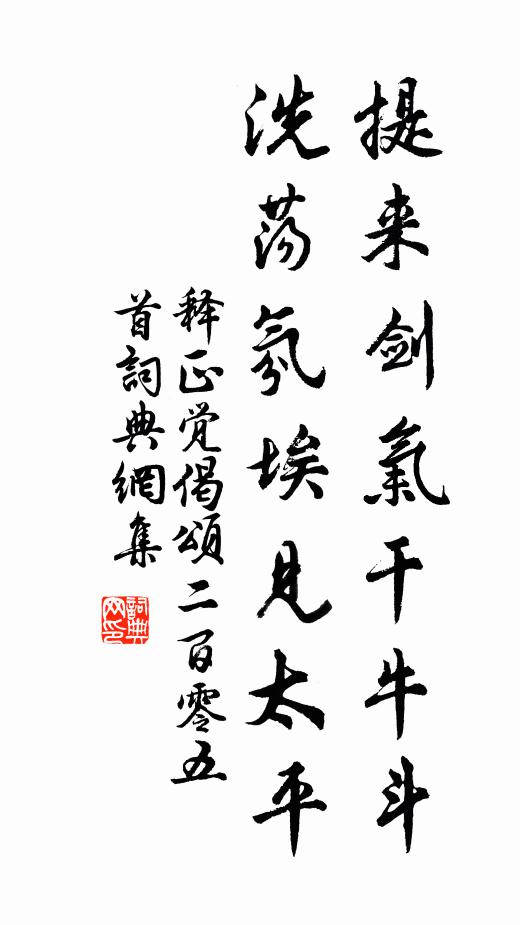 提来剑氣干牛斗
洗荡氛埃見太平
释正觉偈頌二百零五
首詞典網集
詞典网印